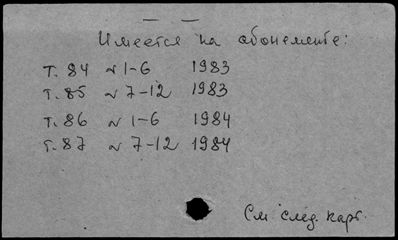 — —
Имеется на абонементе:
т. 84 № 1-6 1983
т. 85 № 7-12 1983
т. 86 № 1-6 1984
т. 87 № 7-12 1984
См. след. карт.